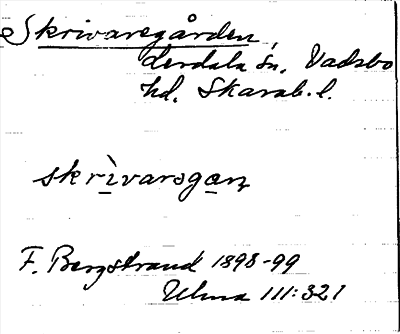 Skrivaregården,
Lerdala sn, Vadsbo
hd, Skarab. l.
skrìvarsgaɳ
F. Bergstrand 1898-99
Ulma 111:321